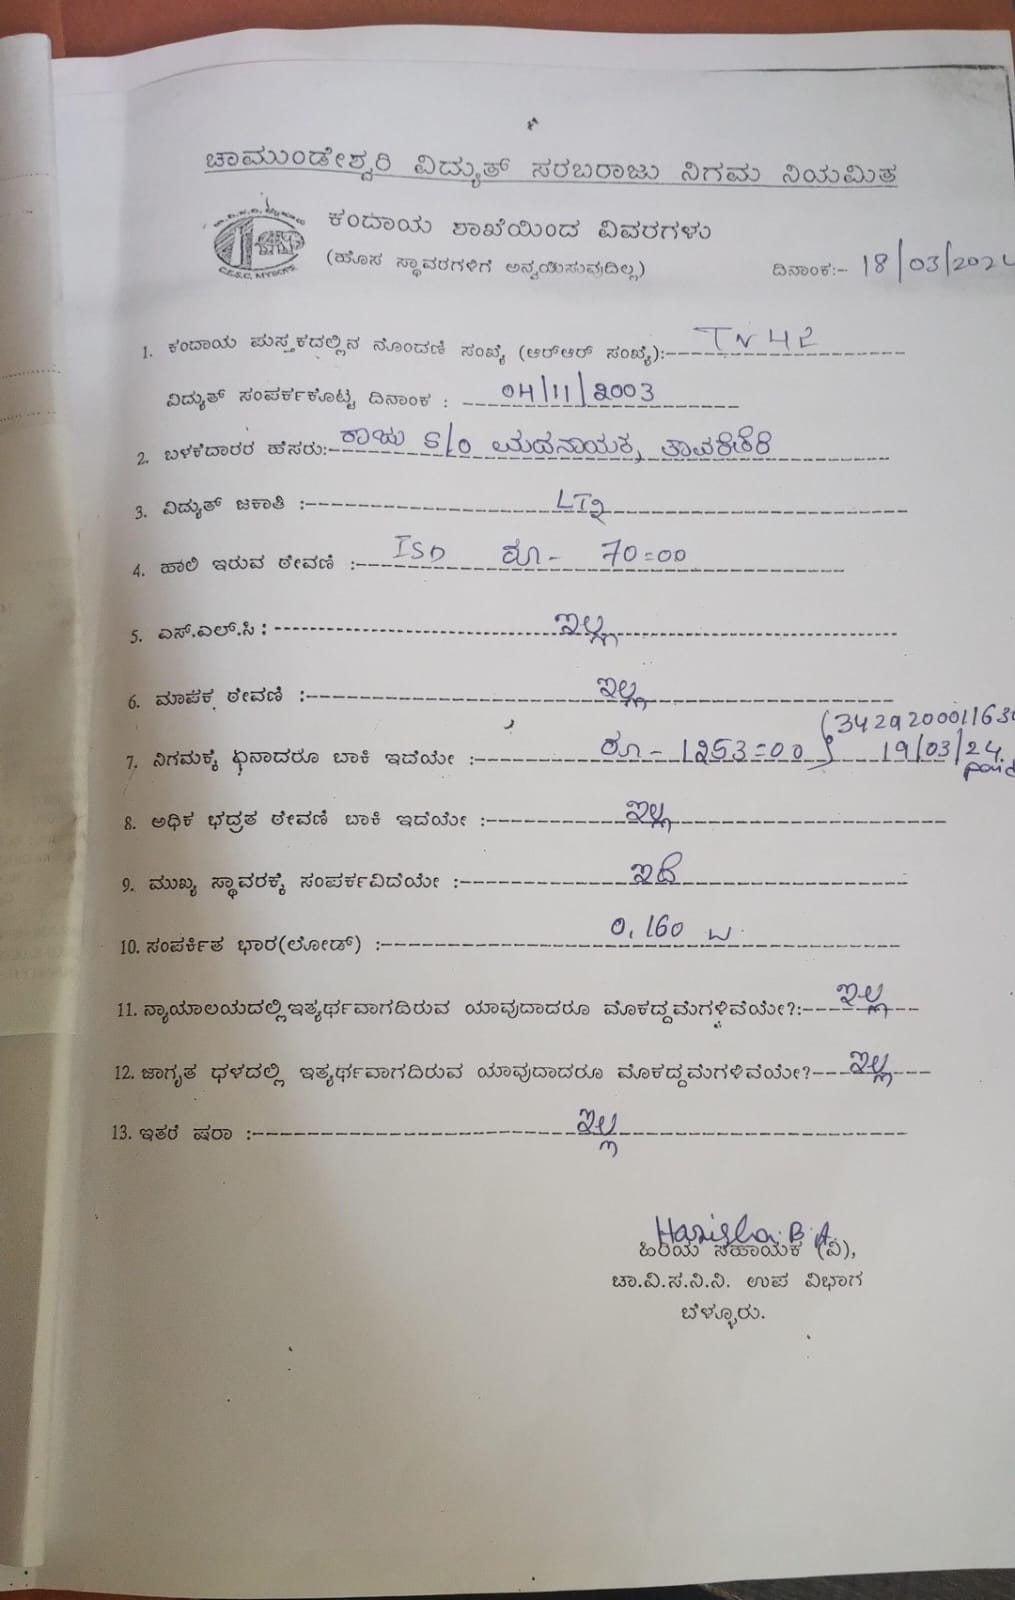 ಚಾಮುಂಡೇಶ್ವರಿ ವಿದ್ಯುತ್ ಸರಬರಾಜು ನಿಗಮ ನಿಯಮಿತ
ಕಂದಾಯ ಶಾಖೆಯಿಂದ ವಿವರಗಳು
C.E.S.C, MYSORE
(ಹೊಸ ಸ್ಥಾವರಗಳಿಗೆ ಅನ್ವಯಿಸುವುದಿಲ್ಲ)
ದಿನಾಂಕ:- 18/03/2024
1. ಕಂದಾಯ ಪುಸ್ತಕದಲ್ಲಿನ ನೊಂದಣಿ ಸಂಖ್ಯೆ (ಆರ್‌ಆರ್ ಸಂಖ್ಯೆ):- TN 42
ವಿದ್ಯುತ್ ಸಂಪರ್ಕಕೊಟ್ಟ ದಿನಾಂಕ : 04/11/2003
2. ಬಳಕೆದಾರರ ಹೆಸರು:- ರಾಜು S/o
3. ವಿದ್ಯುತ್ ಜಕಾತಿ :- LT2
4. ಹಾಲಿ ಇರುವ ಠೇವಣಿ :- ISD ರೂ- 70=00
5. ಎಸ್.ಎಲ್.ಸಿ :- ಇಲ್ಲ
6. ಮಾಪಕ ಠೇವಣಿ :- ಇಲ್ಲ
7. ನಿಗಮಕ್ಕೆ ಏನಾದರೂ ಬಾಕಿ ಇದೆಯೇ :- ರೂ- 1253=00 19/03/24 paid
8. ಅಧಿಕ ಭದ್ರತ ಠೇವಣಿ ಬಾಕಿ ಇದೆಯೇ :- ಇಲ್ಲ
9. ಮುಖ್ಯ ಸ್ಥಾವರಕ್ಕೆ ಸಂಪರ್ಕವಿದೆಯೇ :- ಇದೆ
10. ಸಂಪರ್ಕಿತ ಭಾರ(ಲೋಡ್) :- 0.160
11. ನ್ಯಾಯಾಲಯದಲ್ಲಿ ಇತ್ಯರ್ಥವಾಗದಿರುವ ಯಾವುದಾದರೂ ಮೊಕದ್ದಮೆಗಳಿವೆಯೇ?:- ಇಲ್ಲ
12. ಜಾಗೃತ ಧಳದಲ್ಲಿ ಇತ್ಯರ್ಥವಾಗದಿರುವ ಯಾವುದಾದರೂ ಮೊಕದ್ದಮೆಗಳಿವೆಯೇ? ಇಲ್ಲ
13. ಇತರೆ ಷರಾ :- ಇಲ್ಲ
Harisha B A
ಹಿರಿಯ ಸಹಾಯಕ (ವಿ),
ಚಾ.ವಿ.ಸ.ನಿ.ನಿ. ಉಪ ವಿಭಾಗ
ಬೆಳ್ಳೂರು.